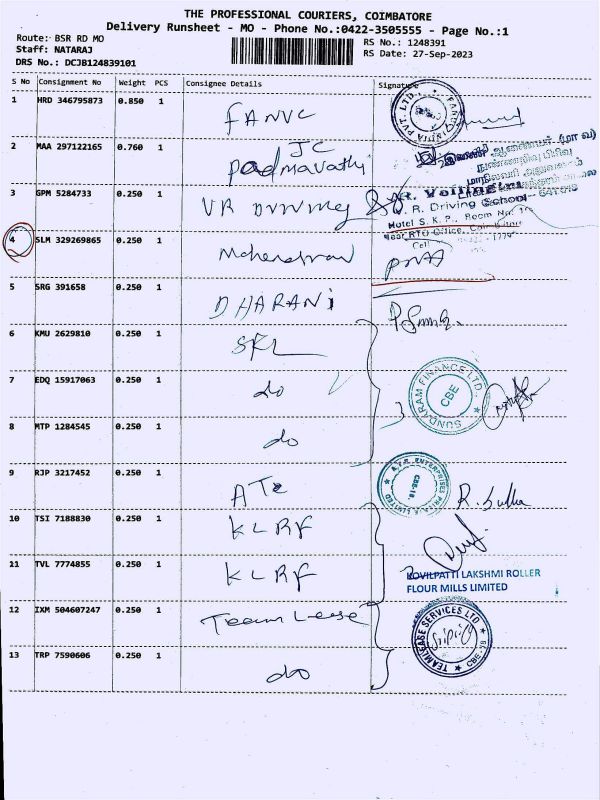 THE PROFESSIONAL COURIERS, COIMBATORE
Delivery Runsheet - MO - Phone No.:0422-3505555 - Page No.:1
Route: BSR RD MO
RS No.: 1248391
Staff: NATARAJ
RS Date: 27-Sep-2023
DRS No.: DCJB124839101
S No Consignment No Weight PCS Consignee Details Signature
1 HRD 346795873 0.850 1 FANUC
2 MAA 297122165 0.760 1 JC
Padmavathi
3 GPM 5284733 0.250 1 VR Driving
R. Driving School
Hotel S. K. P., Room No.
Near RTO Office,
Cell
4 SLM 329269865 0.250 1 Mahendran
5 SRG 391658 0.250 1 DHARANI
6 KMU 2629810 0.250 1 SFL
7 EDQ 15917063 0.250 1 do
SUNDARAM FINANCE LTD.
CBE
8 MTP 1284545 0.250 1 do
9 RJP 3217452 0.250 1 ATE
ENTERPRISES PRIVATE LIMITED
CBE-18.
10 TSI 7188830 0.250 1 KLRF
11 TVL 7774855 0.250 1 KLRF
KOVILPATTI LAKSHMI ROLLER
FLOUR MILLS LIMITED
12 IXM 504607247 0.250 1 Team Lease
TEAMLEASE SERVICES LTD
CBE-18
13 TRP 7590606 0.250 1 do